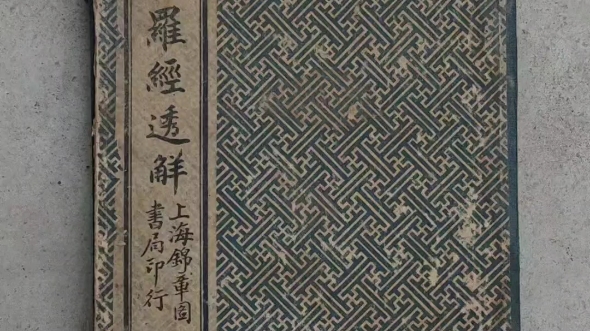 羅經透解
上海錦章圖
書局印行